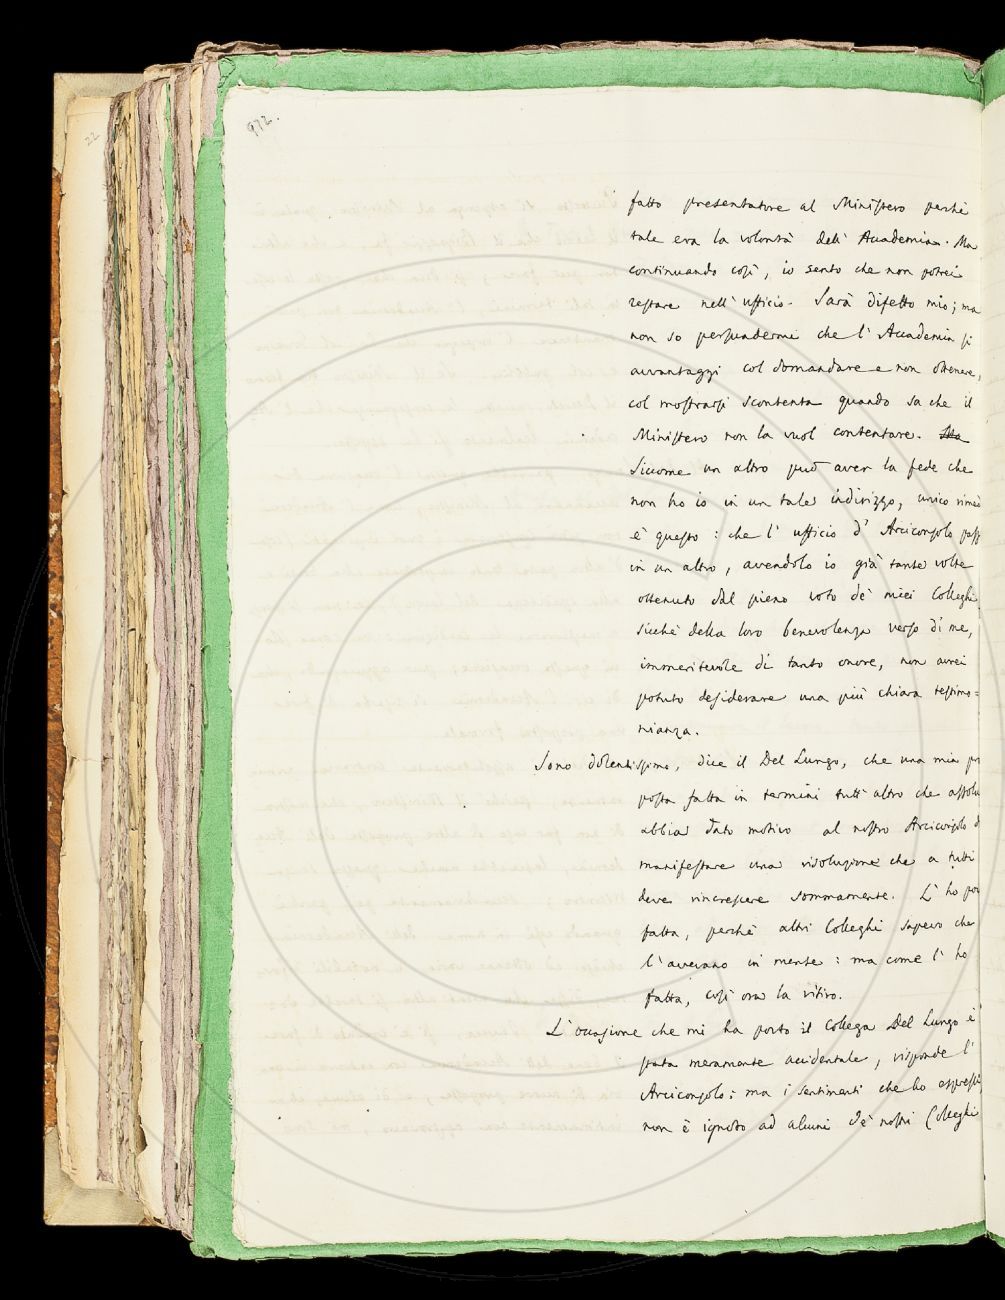 22
972.
fatto presentatore al Ministero perchè
tale era la volontà dell' Accademia. Ma
continuando così, io sento che non potrei
restare nell' ufficio. Sarà difetto mio; ma
non so persuadermi che l' Accademia si
avvantaggi col domandare e non ottenere,
col mostrarsi scontenta quando sa che il
Ministero non la vuol contentare. Ma
Siccome un altro può aver la fede che
non ho io in un tale indirizzo, unico rimed
è questo: che l' ufficio d' Arciconsolo pass
in un altro, avendolo io già tante volte
ottenuto dal pieno voto de' miei Colleghi
sicchè della loro benevolenza verso di me,
immeritevole di tanto onore, non avrei
potuto desiderare una più chiara testimo=
nianza.
Sono dolentissimo, dice il Del Lungo, che una mia pr
posta fatta in termini tutt' altro che assolu
abbia dato motivo al nostro Arciconsolo d
manifestare una risoluzione che a tutti
deve rincrescere sommamente. L' ho po
fatta, perchè altri Colleghi sapevo che
l' avevano in mente: ma come l' ho
fatta, così ora la ritiro.
L' occasione che mi ha porto il Collega Del Lungo è
stata meramente accidentale, risponde l'
Arciconsolo; ma i sentimenti che ho espressi
non è ignoto ad alcuni de' nostri Colleghi